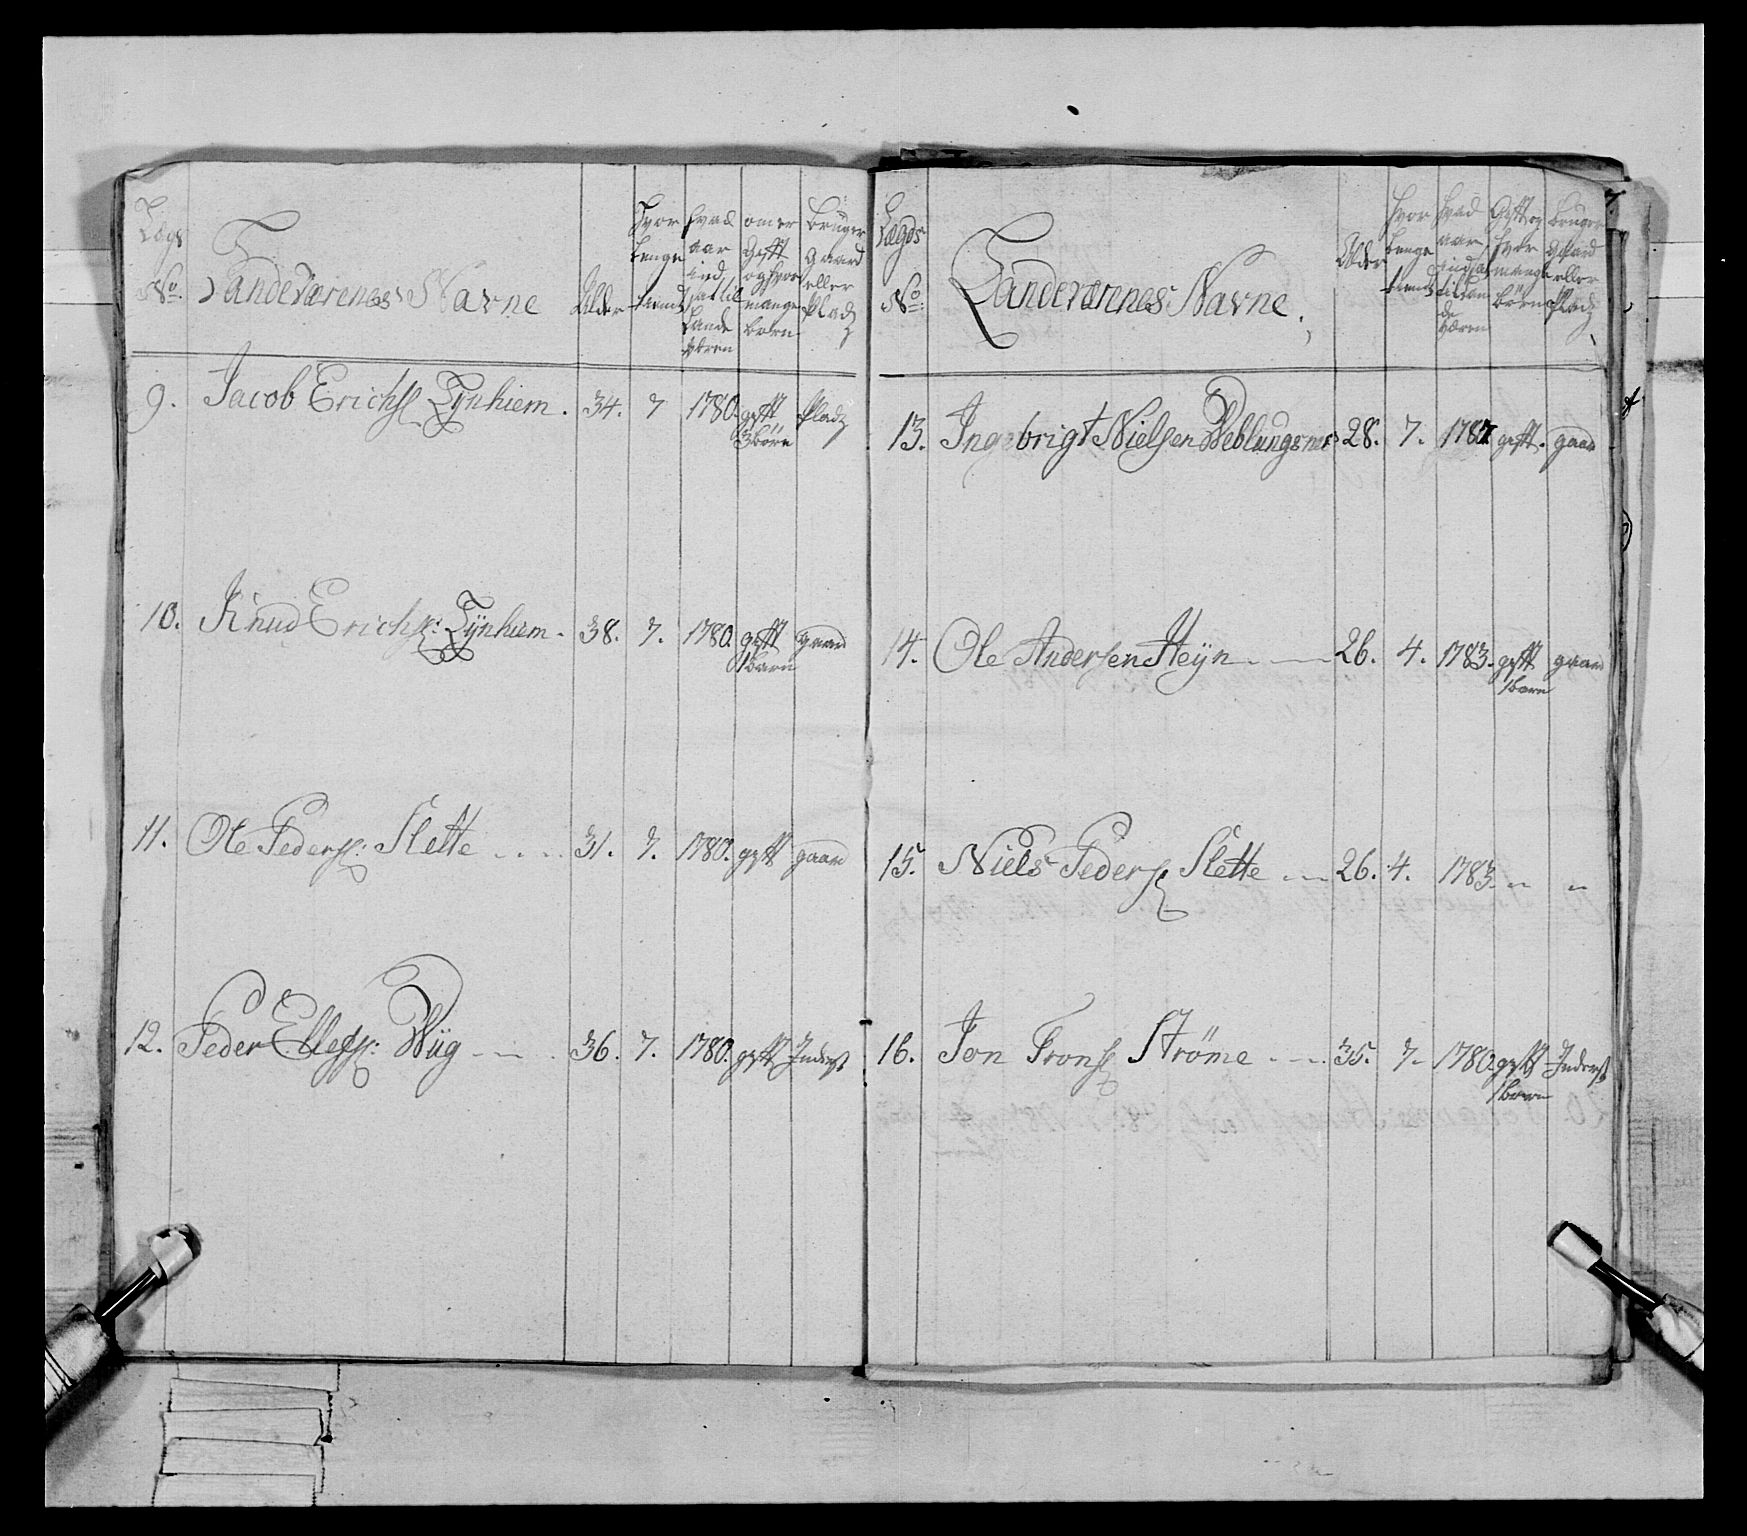 Lægs No. Landeværenes Navne Alder Hvor lenge tient Hvad aar ind sat til Lande væren om er Gifft og hvor mange børn Bruger Gaard eller Pladz
9. Jacob Erichs. Tynhiem. 34. 7 1780. gifft Pladz
3 børn
10. Knud Erichs: Tÿnhiem. 38. 7. 1780. gifft gaard
1 barn
11. Ole Peders: Slette 31. 7. 1780. gifft gaard
12. Peder Ellefs: Wüg 36. 7. 1780. gifft Inderst
Lægds No. Landeværenes Navne. Alder Hvor lenge tient Hvad aar indsat til Lande Væren Gifft og hvor mange børn bruger Gaard eller Pladz
13. Ingebrigt Nielsen Weblungsnes 28. 7. 1787. gifft. gaard
14. Ole Andersen Heÿn 26. 4. 1783. gifft gaard
1 barn
15. Niels Peders Slette 26. 4. 1783. " "
16. Jon Trons Strøme 35. 7. 1780. gifft Inderst
1 barn